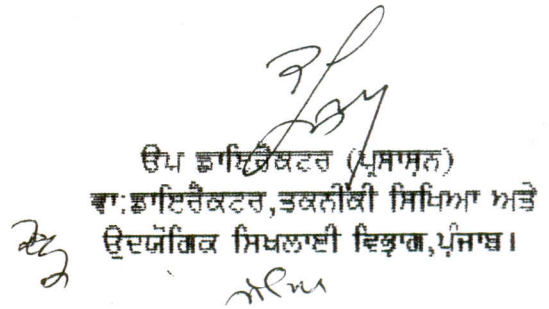 ਉਪ ਡਾਇਰੈਕਟਰ (ਪ੍ਰਸਾਸ਼ਨ)
ਵਾ:ਡਾਇਰੈਕਟਰ,ਤਕਨੀਕੀ ਸਿਖਿਆ ਅਤੇ
ਉਦਯੋਗਿਕ ਸਿਖਲਾਈ ਵਿਭਾਗ,ਪੰਜਾਬ।